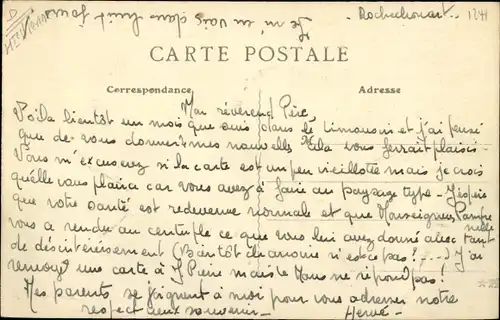 Je m'en vais dans huit jours
Rochechouart.. 1241
Hte Vienne
CARTE POSTALE
Correspondance
Adresse
Mon révérend Père,
Voila bientôt un mois que suis dans le Limousin et j'ai pensé
que de vous donner mes nouvelles Cela vous ferrait plaisir.
Vous m'excuserez si la carte est un peu vieillotte mais je crois
qu'elle vous plaira car vous avez à faire au paysage type. J'espère
que votre santé est redevenue normale et que Monseigneur
vous a rendu au centuple ce que vous lui avez donné avec tant
de désintéressement (Bientôt chanoine n'est-ce pas! ....) J'ai
renvoyé une carte à St Pierre mais le ne répond pas!
Mes parents se joignent à moi pour vous adresser notre
respectueux souvenir— Hervé—